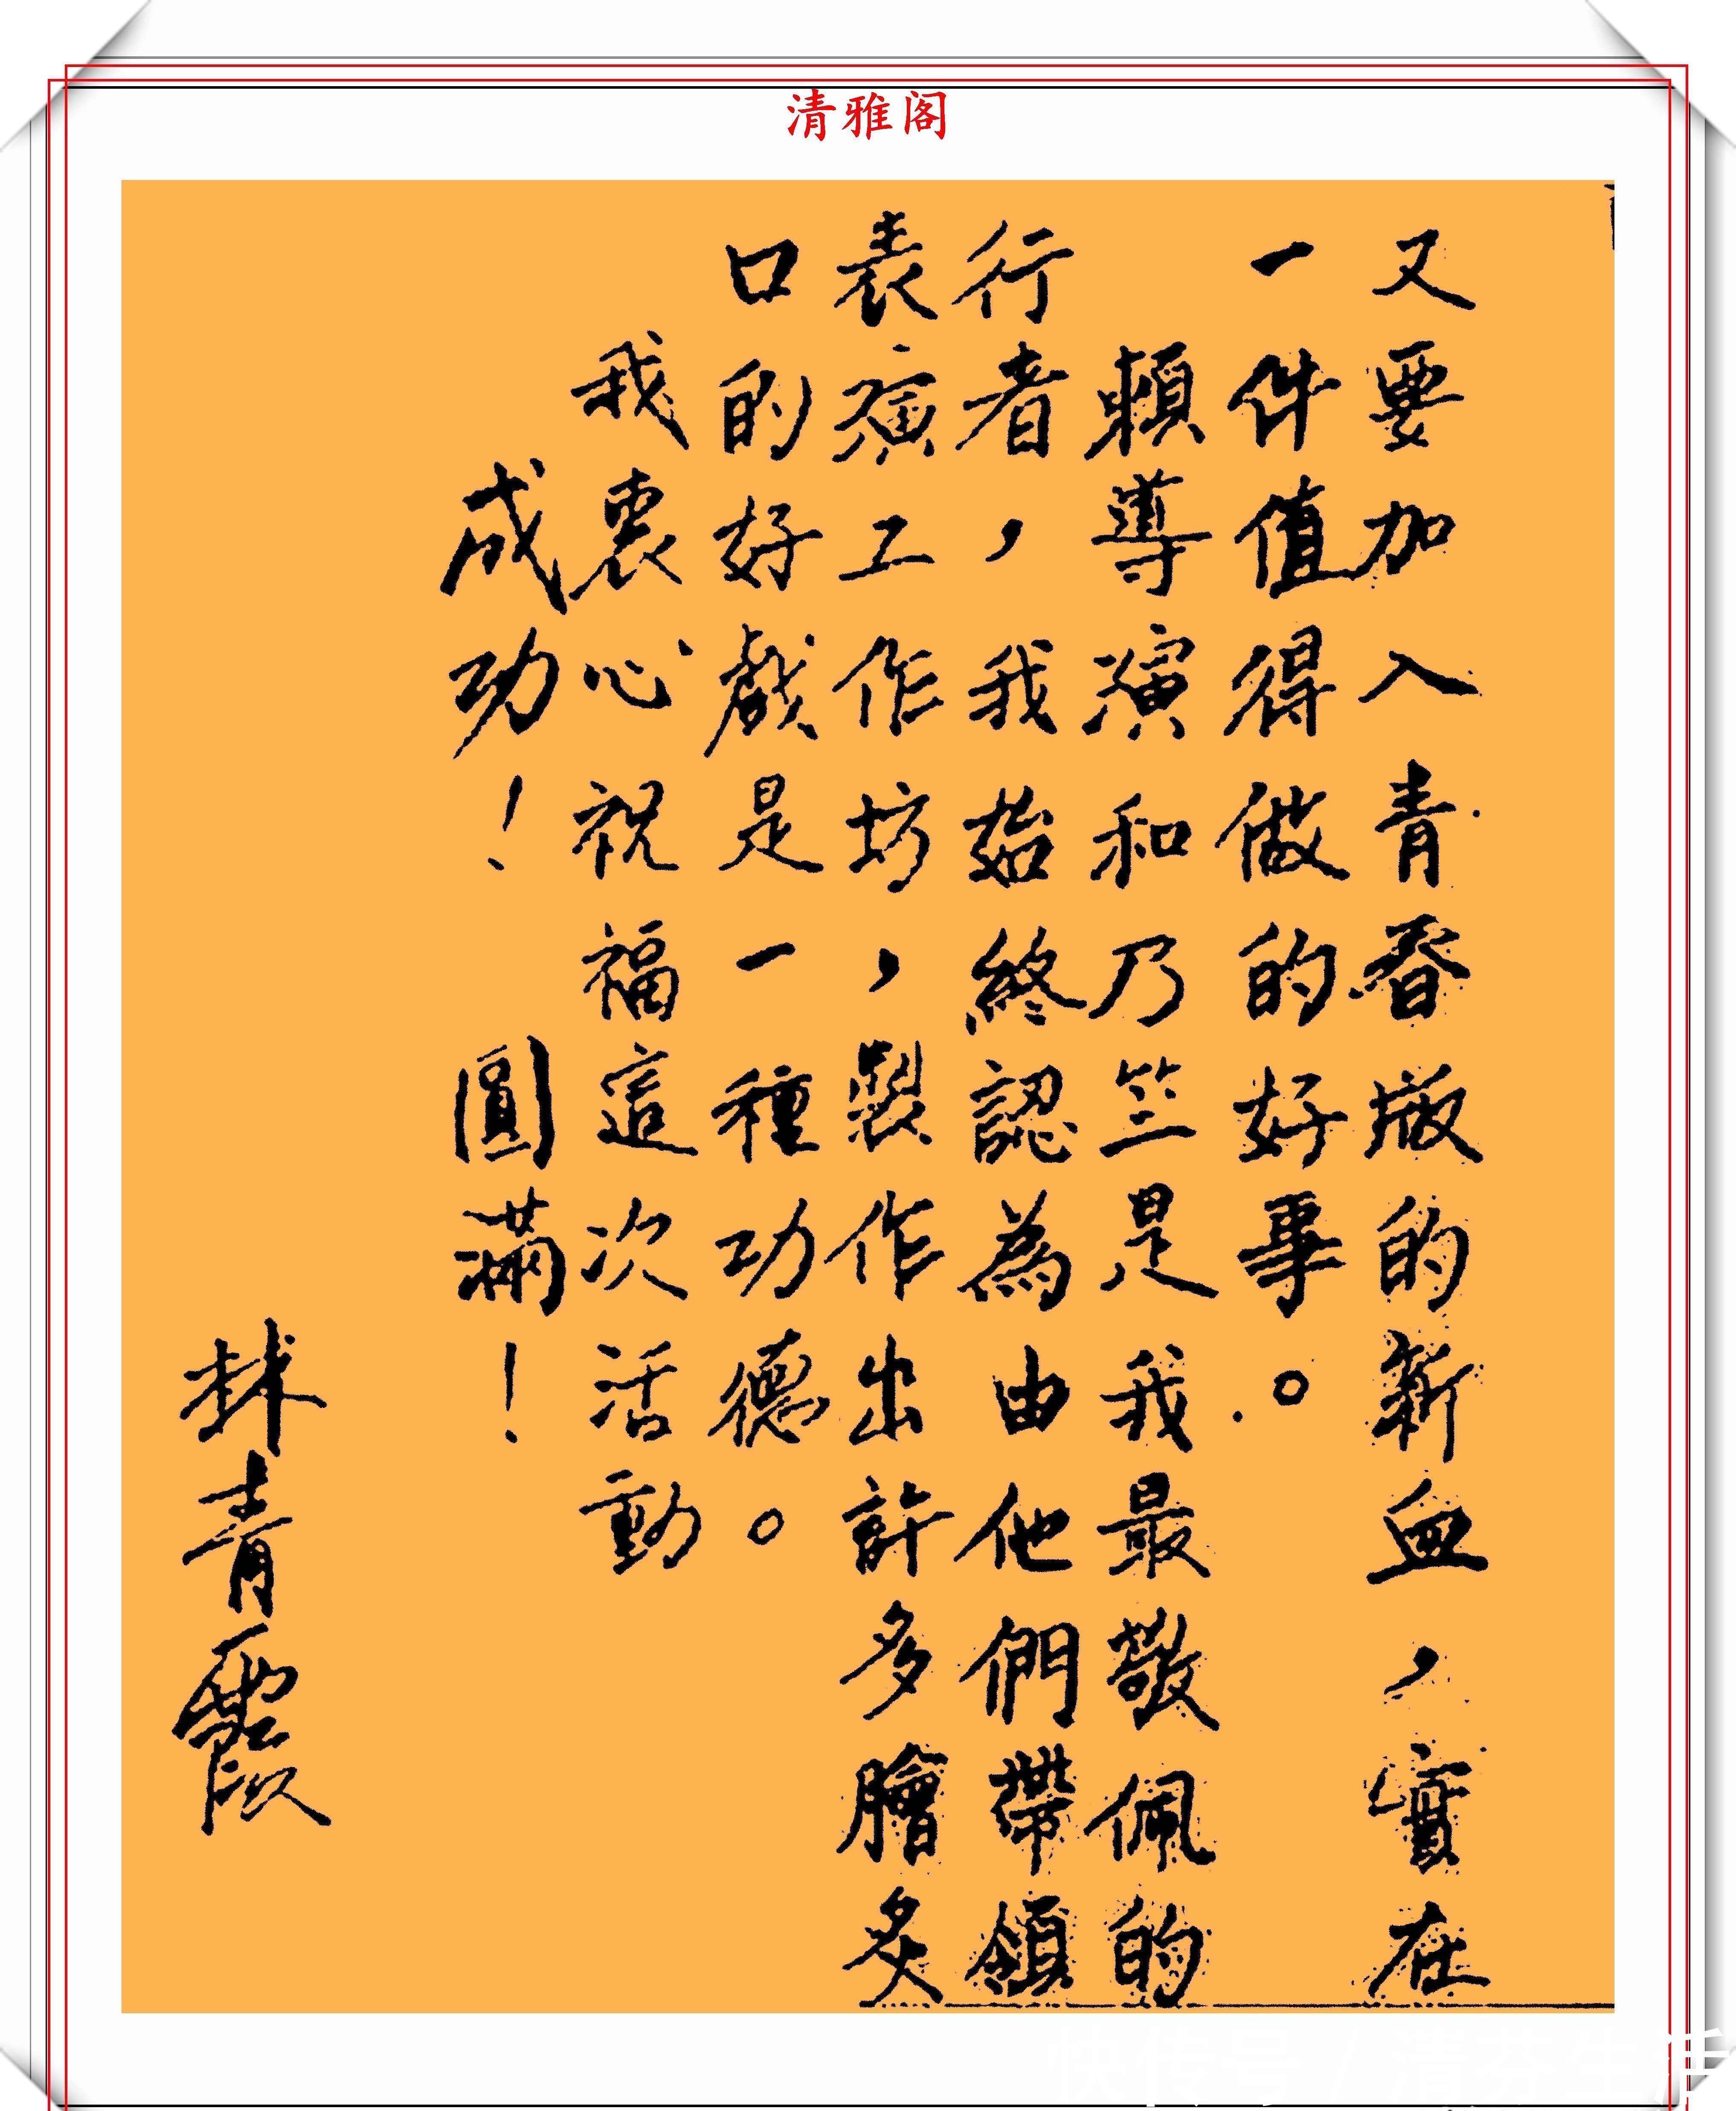 清雅阁
又要加入青春版的新血，實在
一件值得做的好事。
賴導演和乃竺是我最敬佩的
行者，我始終認為由他們帶領
表演工作坊，製作出許多膾炙
口的好戲是一種功德。
我衷心祝福這次活動
成功！圓滿！
林青霞